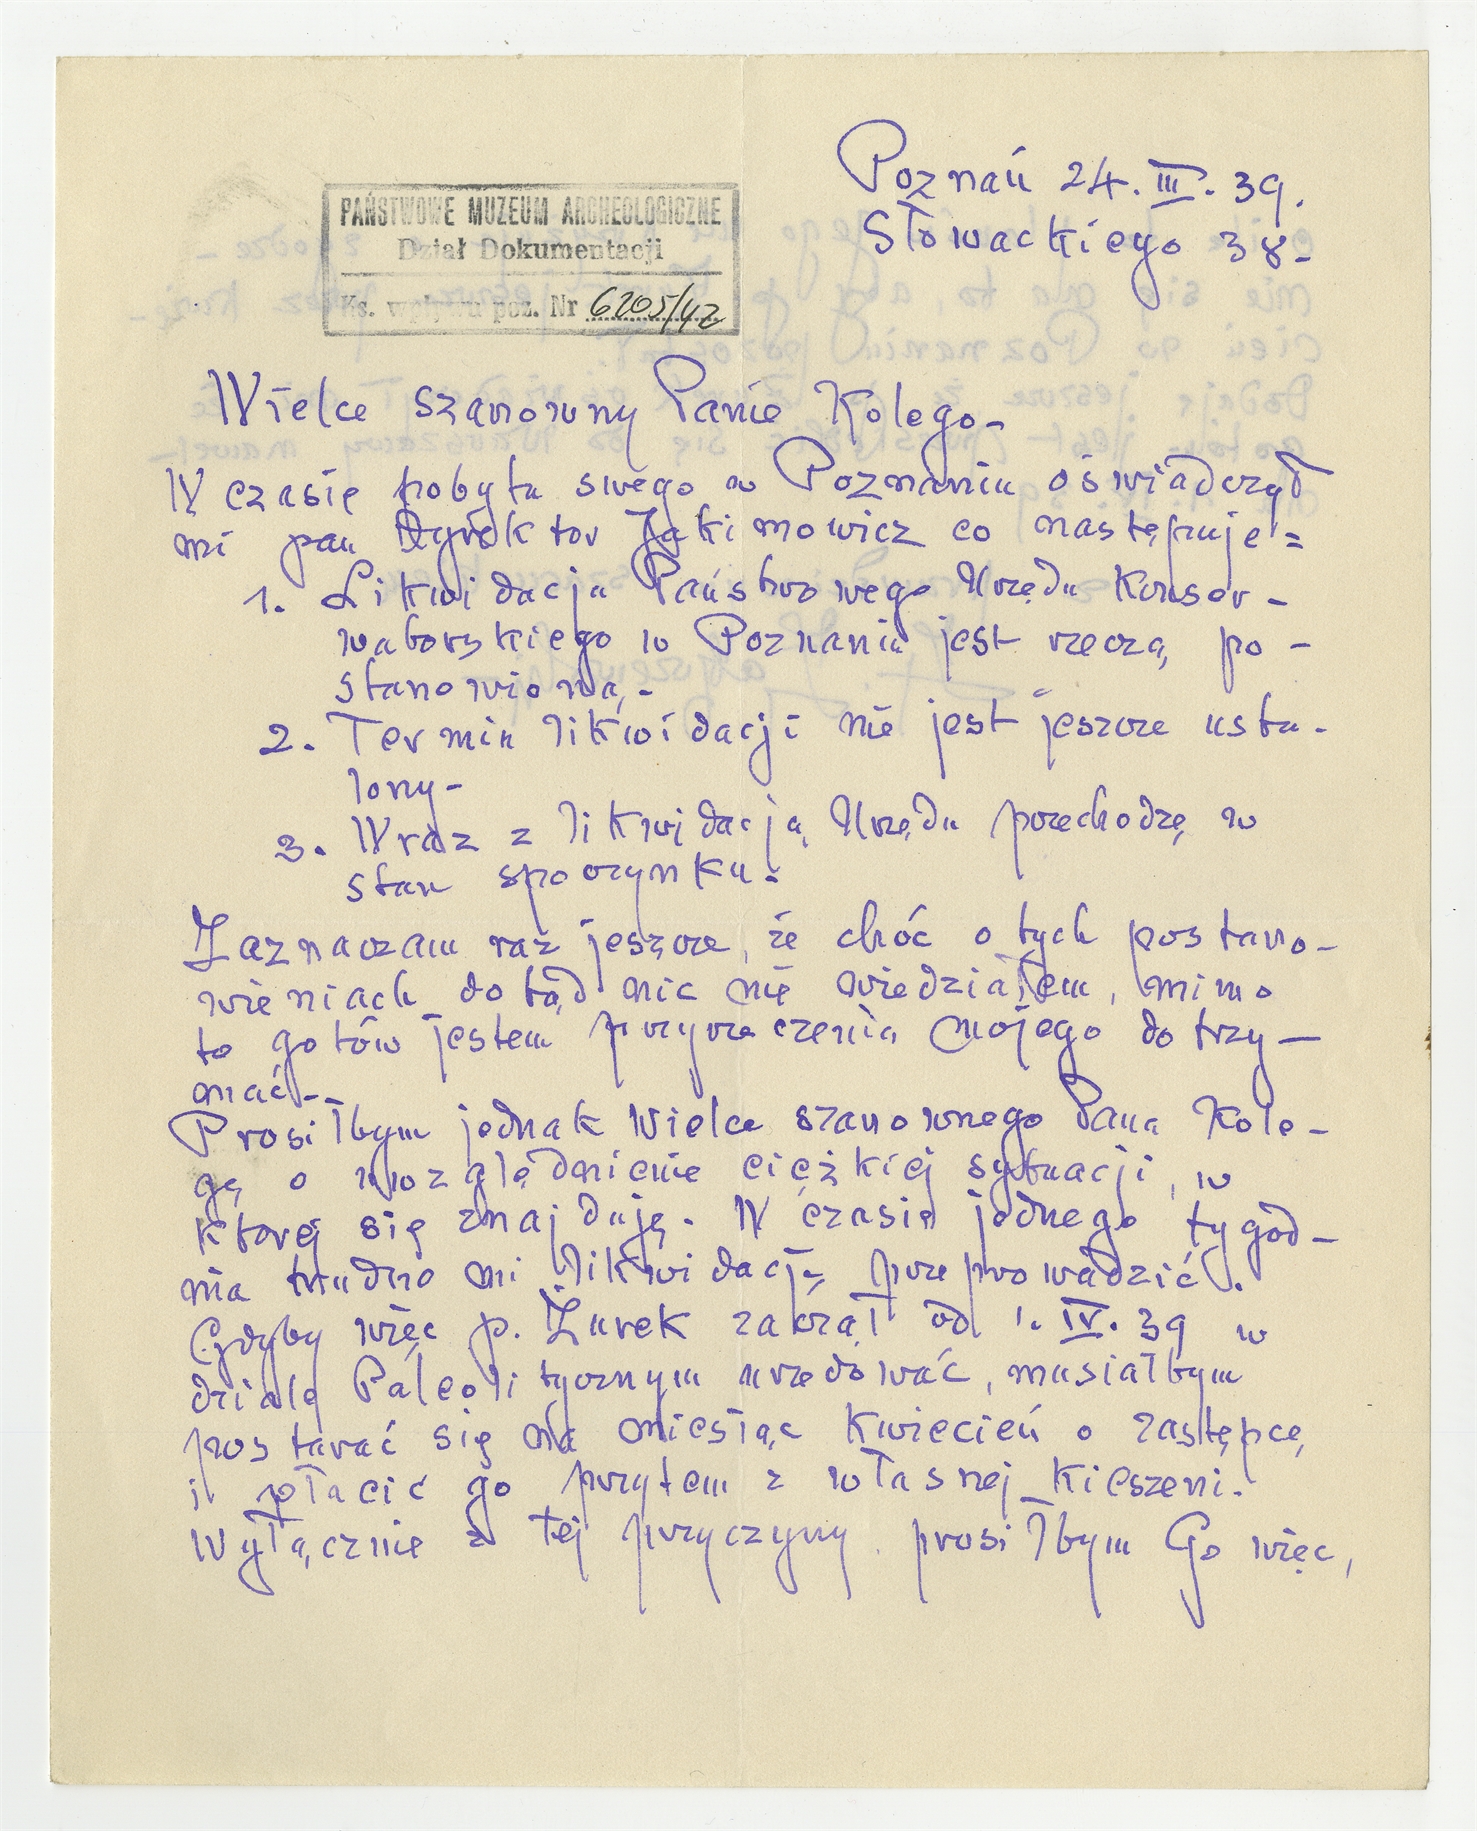 Poznań 24. III. 39.
Słowackiego 38-
PAŃSTWOWE MUZEUM ARCHEOLOGICZNE
Dział Dokumentacji
Ks. wpływu poz. Nr 6205/42
Wielce szanowny Panie Kolego-
W czasie pobytu swego w Poznaniu oświadczył
mi pan Dyrektor Jakimowicz co następuje =
1. Likwidacja Państwowego Urzędu Konser-
watorskiego w Poznaniu jest rzeczą po-
stanowioną.-
2. Termin likwidacji nie jest jeszcze usta-
lony-
3. Wraz z likwidacją Urzędu przechodzę w
stan spoczynku.
Zaznaczam raz jeszcze, że choć o tych postano-
wieniach dotąd nic nie wiedziałem, mimo
to gotów jestem przyrzeczenia mojego dotrzy-
mać.-
Prosiłbym jednak Wielce szanownego Pana Kole-
gę o uwzględnienie ciężkiej sytuacji, w
której się znajduję. W czasie jednego tygod-
nia trudno mi likwidację przeprowadzić.
Gdyby więc p. Żurek zaczął od 1. IV. 39 w
dziale Paleolitycznym urzędować, musiałbym
postarać się na miesiąc Kwiecień o zastępcę
i płacić go przytem z własnej kieszeni.
Wyłącznie z tej przyczyny prosiłbym Go więc,